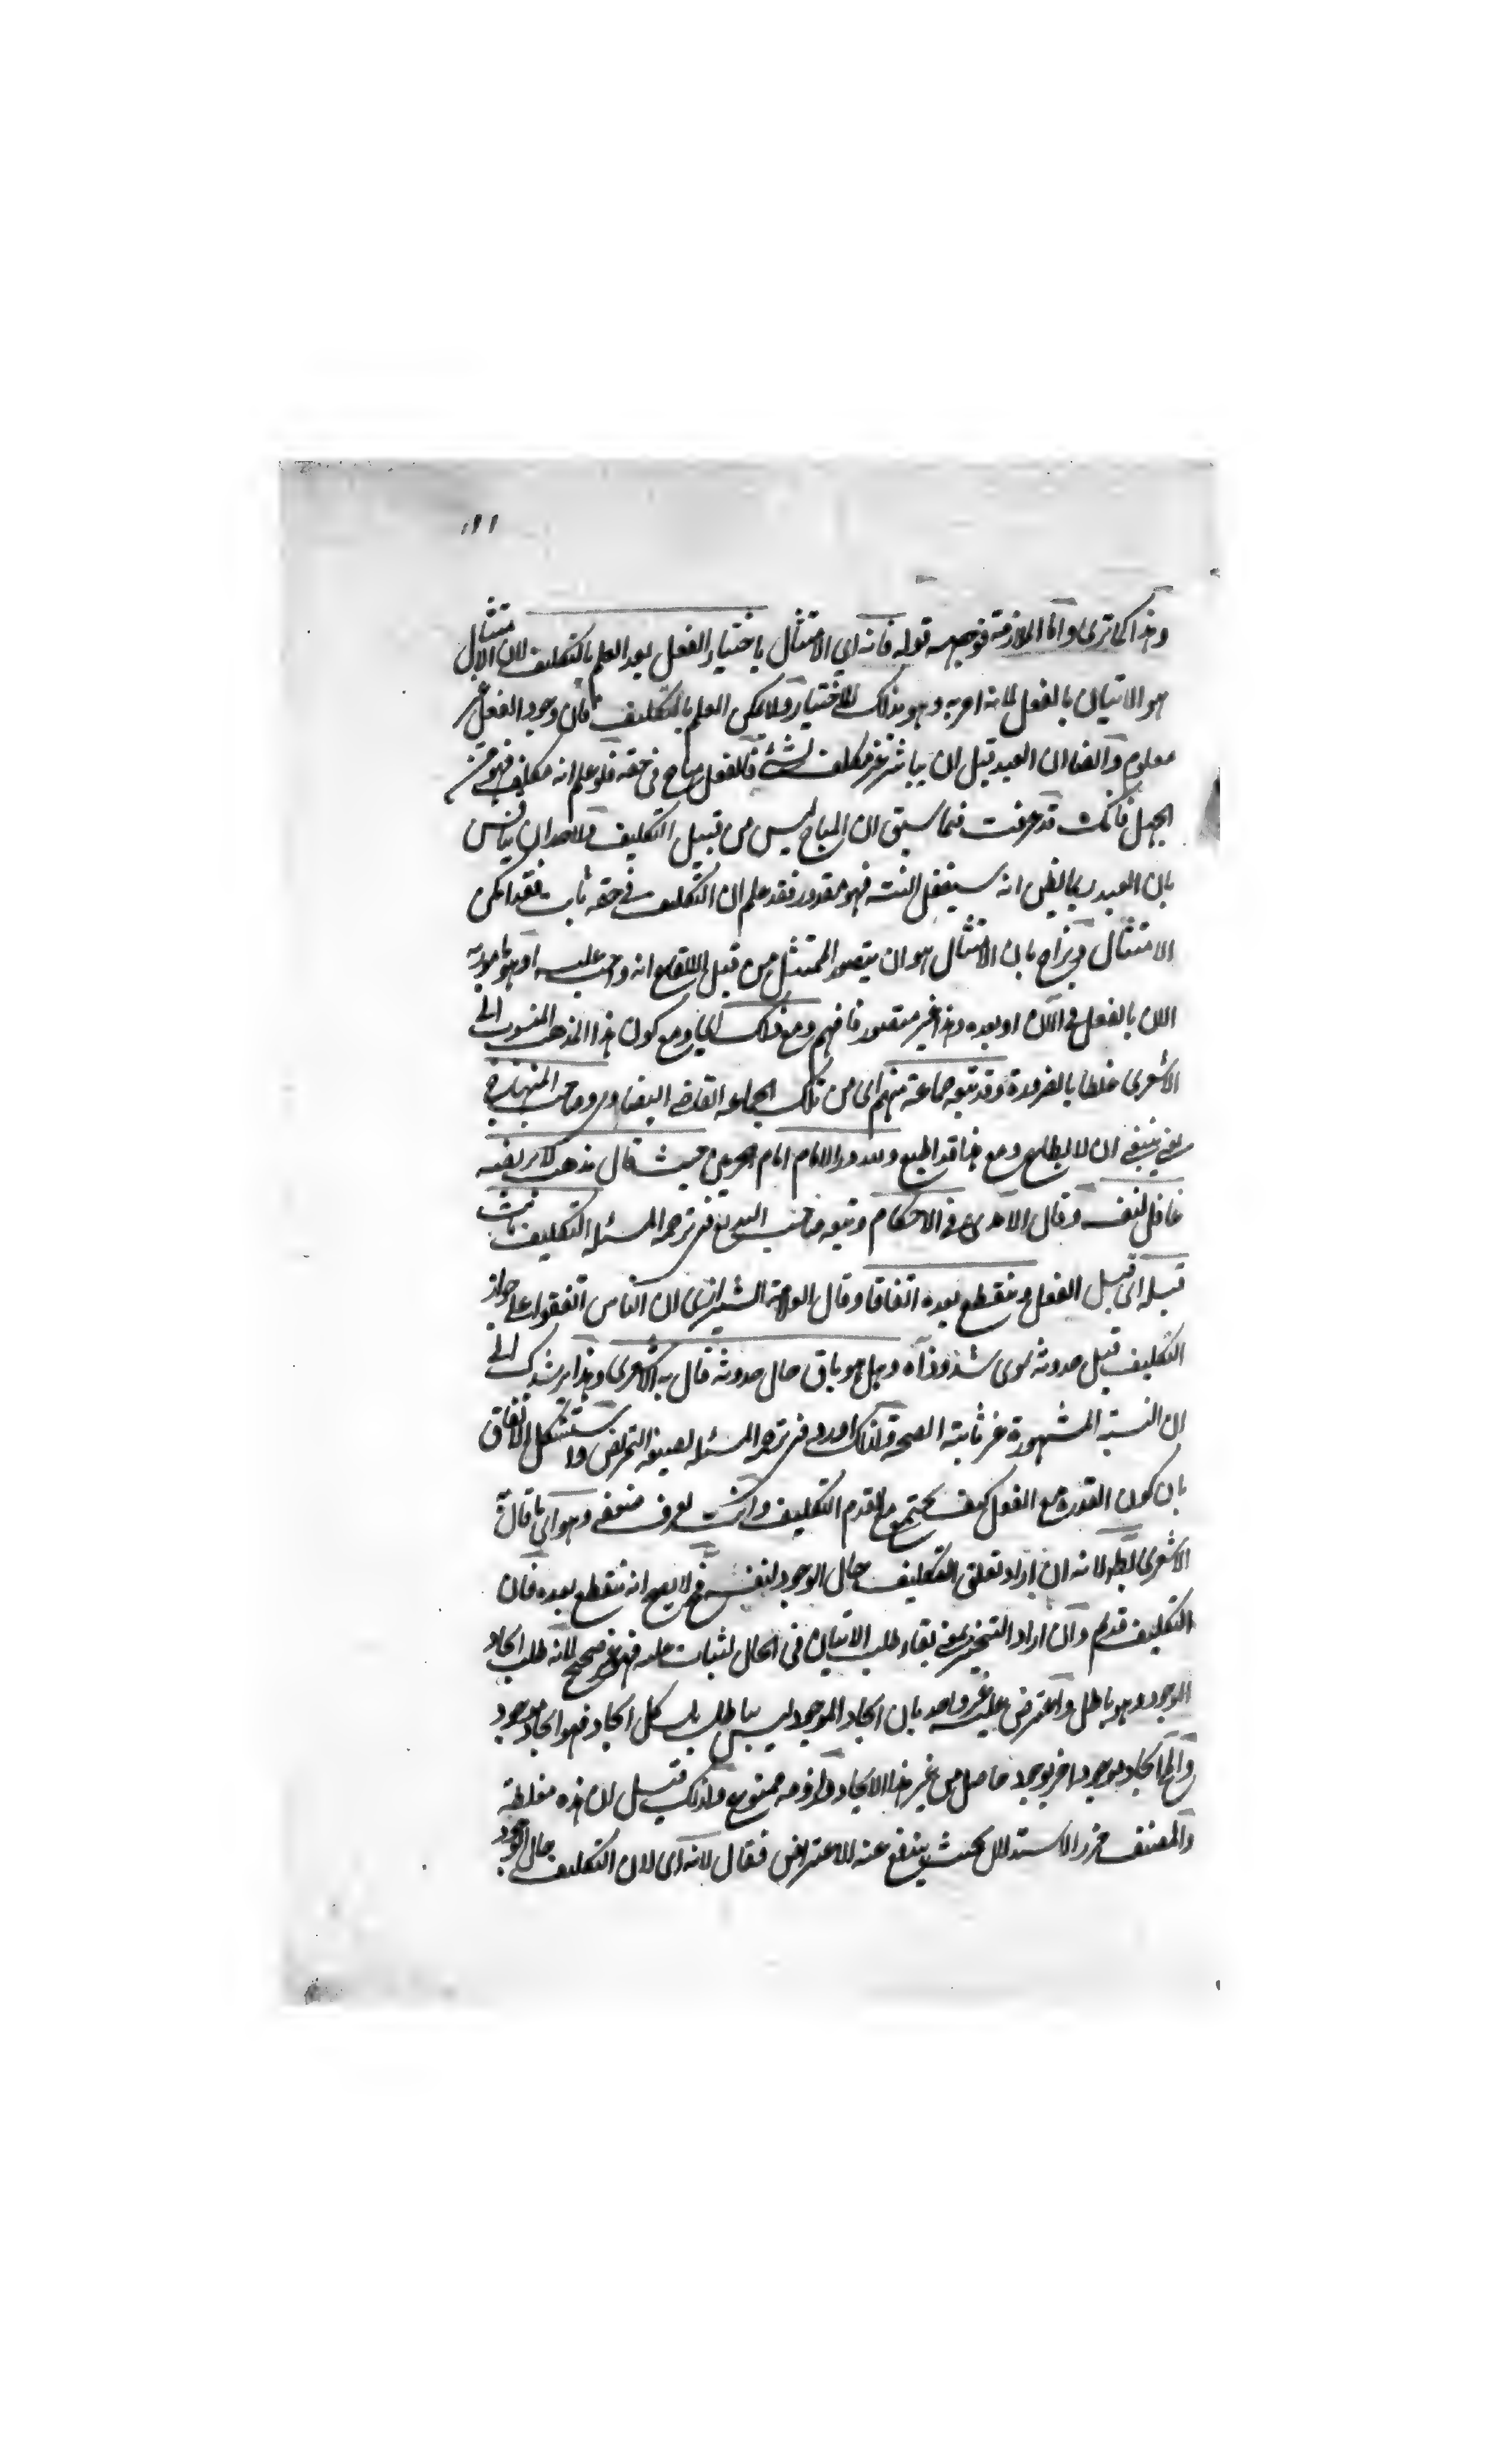 ١١١
وهذا كما ترى واما الملازمة فوجهه قوله فانه اي الامتثال باختيار الفعل بعد العلم بالتكليف لان الامتثال
هو الاتيان بالفعل لانه امر به وهو بذلك الاختيار ولا يمكن العلم بالتكليف فان وجود الفعل غير
معلوم وايضا ان العبد قبل ان يباشر غير مكلف لشئ فالفعل مباح في حقه فلو علم انه مكلف فهو من
الجهل فانك قد عرفت فيما سبق ان المباح ليس من قبيل التكليف ولاحد ان يناقش
بان العبد ربما يظن انه سيفعل البتة فهو مقدور فقد علم ان التكليف في حقه ثابت فقد امكن
الامتثال ويزاح بان الامتثال هو ان يتصور الممتثل من قبل الايقاع انه واجب عليه او هو مامور به
الان بالفعل في الآن او بعده وهذا غير متصور فافهم ومع ذلك اي ومع كون هذا المذهب المنسوب الى
الاشعري غلطا بالضرورة وقد تبعه جماعة منهم اي من تلك الجماعه القاضي البيضاوي وصاحب المنهاج
ينبغي ان لا يطاع ومع هذا قد اطيع ولله در الامام امام الحرمين حيث قال مذهب لا يرتضيه
عاقل لنفسه وقال الآمدي في الاحكام وتبعه صاحب البديع في ترجمه المسئله التكليف ثابت
قبله اي قبل الفعل وينقطع بعده اتفاقا وقال العلامة الشيرازي ان الناس اتفقوا على جواز
التكليف قبل حدوثه سوى شذوذ اه وهل هو باق حال حدوثه قال به الاشعري وهذا يرشدك الى
ان النسبة المشهورة غير ثابتة الصحة ولذلك اورد في ترجمه المسئله بصيغه التمريض واستشكل الاتفاق
بان كون القدرة مع الفعل كيف يجتمع مع تقدم التكليف وانت تعرف ضعفه وهو اي ما قال
الاشعري باطل لانه ان اراد تعلق التكليف حال الوجود لنفسه فح لا يصح انه ينقطع بعده فان
التكليف قديم وان اراد التنجيز بمعنى بقاء طلب الاتيان في الحال لثبات عليه فهو غير صحيح لانه طلب ايجاد
الموجود وهو باطل واعترض عليه غير واحد بان ايجاد الموجود ليس بباطل بل كل ايجاد فهو ايجاد موجود
وانما ايجاد موجود اخر بوجود حاصل من غير هذا الايجاد ولزومه ممنوع ولذلك قيل ان هذه مغلطة
والمصنف حرر الاستدلال بحيث يندفع عنه الاعتراض فقال لانه اي لان التكليف حال الوجود